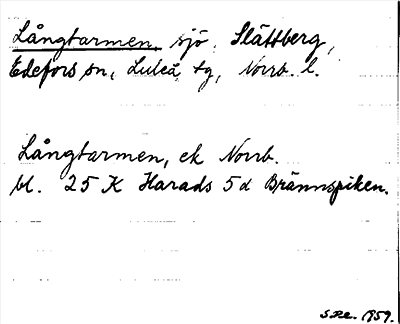 Långtarmen, sjö, Slättberg,
Edefors sn, Luleå tg, Norrb. l.
Långtarmen, ek Norrb.
bl. 25 K Harads 5d Brännspiken.
S.Re. 1959.